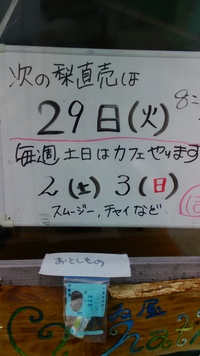 次の梨直売は
29日(火)
8:
毎週土日はカフェやります
2(土) 3(日)
スムージー,チャイなど
おとしもの